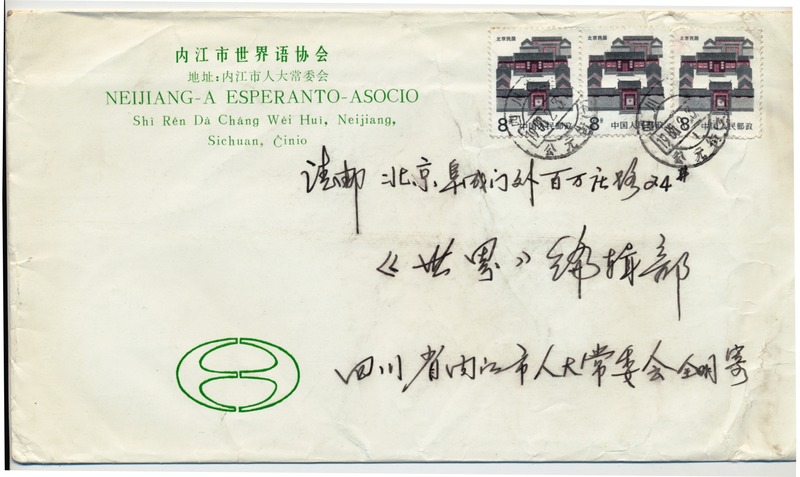 内江市世界语协会
地址:内江市人大常委会
NEIJIANG-A ESPERANTO-ASOCIO
Shì Rén Dà Cháng Wěi Huì, Neijiang,
Sichuan, Ĉinio
北京民居
8分 中国人民邮政
北京民居
8分 中国人民邮政
北京民居
8分 中国人民邮政
请邮:北京阜成门外百万庄路24#
《世界》编辑部
四川省内江市人大常委会 寄